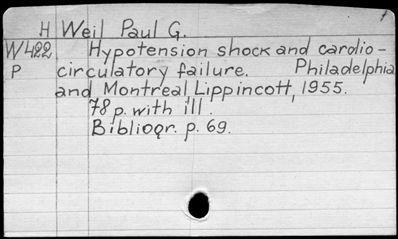 H Weil Paul G.
W422 Hypotension shock and cardio-
P circulatory failure. Philadelphia
and Montreal Lippincott, 1955.
78 p. with ill.
Bibliogr. p. 69.